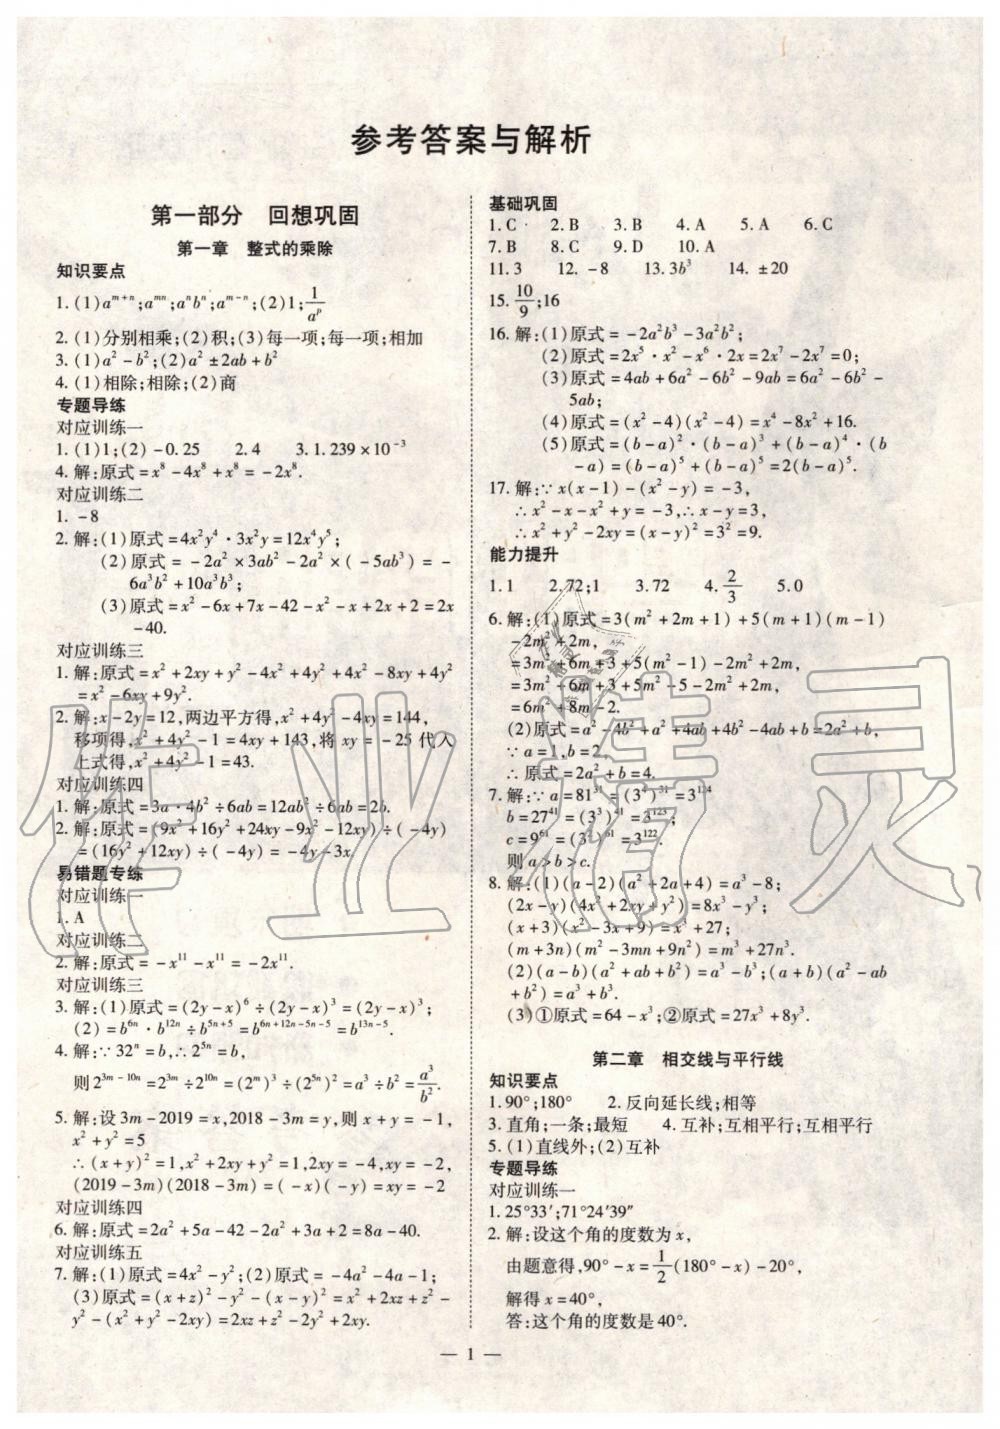 参考答案与解析
第一部分 回想巩固
第一章 整式的乘除
知识要点
1. (1)a^{m+n};a^{mn};a^n b^n;a^{m-n};(2)1;1/a^p
2. (1)分别相乘;(2)积;(3)每一项;每一项;相加
3. (1)a²-b²;(2)a²±2ab+b²
4. (1)相除;相除;(2)商
专题导练
对应训练一
1. (1)1;(2)-0.25 2.4 3.1.239×10^{-3}
4. 解:原式=x⁸-4x⁸+x⁸=-2x⁸.
对应训练二
1. -8
2. 解:(1)原式=4x²y⁴·3x²y=12x⁴y⁵;
(2)原式=-2a²×3ab²-2a²×(-5ab³)=-
6a³b²+10a³b³;
(3)原式=x²-6x+7x-42-x²-x+2x+2=2x
-40.
对应训练三
1. 解:原式=x²+2xy+y²-4x²+4y²+4x²-8xy+4y²
=x²-6xy+9y².
2. 解:x-2y=12,两边平方得,x²+4y²-4xy=144,
移项得,x²+4y²-1=4xy+143,将xy=-25代入
上式得,x²+4y²-1=43.
对应训练四
1. 解:原式=3a·4b²÷6ab=12ab²÷6ab=2b.
2. 解:原式=(9x²+16y²+24xy-9x²-12xy)÷(-4y)
=(16y²+12xy)÷(-4y)=-4y-3x.
易错题专练
对应训练一
1. A
对应训练二
2. 解:原式=-x¹¹-x¹¹=-2x¹¹.
对应训练三
3. 解:(1)原式=(2y-x)⁶÷(2y-x)³=(2y-x)³;
(2)=b^{6n}·b^{12n}÷b^{5n+5}=b^{6n+12n-5n-5}=b^{13n-5}.
4. 解:∵32ⁿ=b,∴2^{5n}=b,
则2^{3m-10n}=2^{3m}÷2^{10n}=(2^m)³÷(2^{5n})²=a³÷b²=a³/b².
5. 解:设3m-2019=x,2018-3m=y,则x+y=-1,
x²+y²=5
∴(x+y)²=1,x²+2xy+y²=1,2xy=-4,xy=-2,
(2019-3m)(2018-3m)=(-x)(-y)=xy=-2
对应训练四
6. 解:原式=2a²+5a-42-2a²+3a+2=8a-40.
对应训练五
7. 解:(1)原式=4x²-y²;(2)原式=-4a²-4a-1;
(3)原式=(x+z)²-y²-(x-y)²=x²+2xz+z²-
y²-(x²+y²-2xy)=2xz+z²-2y²+2xy.
基础巩固
1. C 2. B 3. B 4. A 5. A 6. C
7. B 8. C 9. D 10. A
11. 3 12. -8 13. 3b³ 14. ±20
15. 10/9;16
16. 解:(1)原式=-2a²b³-3a²b²;
(2)原式=2x⁵·x²-x⁶·2x=2x⁷-2x⁷=0;
(3)原式=4ab+6a²-6b²-9ab=6a²-6b²-
5ab;
(4)原式=(x²-4)(x²-4)=x⁴-8x²+16.
(5)原式=(b-a)²·(b-a)³+(b-a)⁴·(b
-a)=(b-a)⁵+(b-a)⁵=2(b-a)⁵.
17. 解:∵x(x-1)-(x²-y)=-3,
∴x²-x-x²+y=-3,∴x-y=3,
∴x²+y²-2xy=(x-y)²=3²=9.
能力提升
1. 1 2. 72;1 3. 72 4. 2/3 5. 0
6. 解:(1)原式=3(m²+2m+1)+5(m+1)(m-1)
-2m²+2m,
=3m²+6m+3+5(m²-1)-2m²+2m,
=3m²+6m+3+5m²-5-2m²+2m,
=6m²+8m-2.
(2)原式=a²-4b²+a²+4ab+4b²-4ab+b=2a²+b,
∵a=1,b=2,
∴原式=2a²+b=4.
7. 解:∵a=81³¹=(3⁴)³¹=3¹²⁴
b=27⁴¹=(3³)⁴¹=3¹²³;
c=9⁶¹=(3²)⁶¹=3¹²².
则a>b>c.
8. 解:(1)(a-2)(a²+2a+4)=a³-8;
(2x-y)(4x²+2xy+y²)=8x³-y³;
(x+3)(x²-3x+9)=x³+27;
(m+3n)(m²-3mn+9n²)=m³+27n³.
(2)(a-b)(a²+ab+b²)=a³-b³;(a+b)(a²-ab
+b²)=a³+b³.
(3)①原式=64-x³;②原式=27x³+8y³.
第二章 相交线与平行线
知识要点
1. 90°;180° 2. 反向延长线;相等
3. 直角;一条;最短 4. 互补;互相平行;互相平行
5. (1)直线外;(2)互补
专题导练
对应训练一
1. 25°33′;71°24′39″
2. 解:设这个角的度数为x,
由题意得,90°-x=1/2(180°-x)-20°,
解得x=40°,
答:这个角的度数是40°.
— 1 —
作业精灵